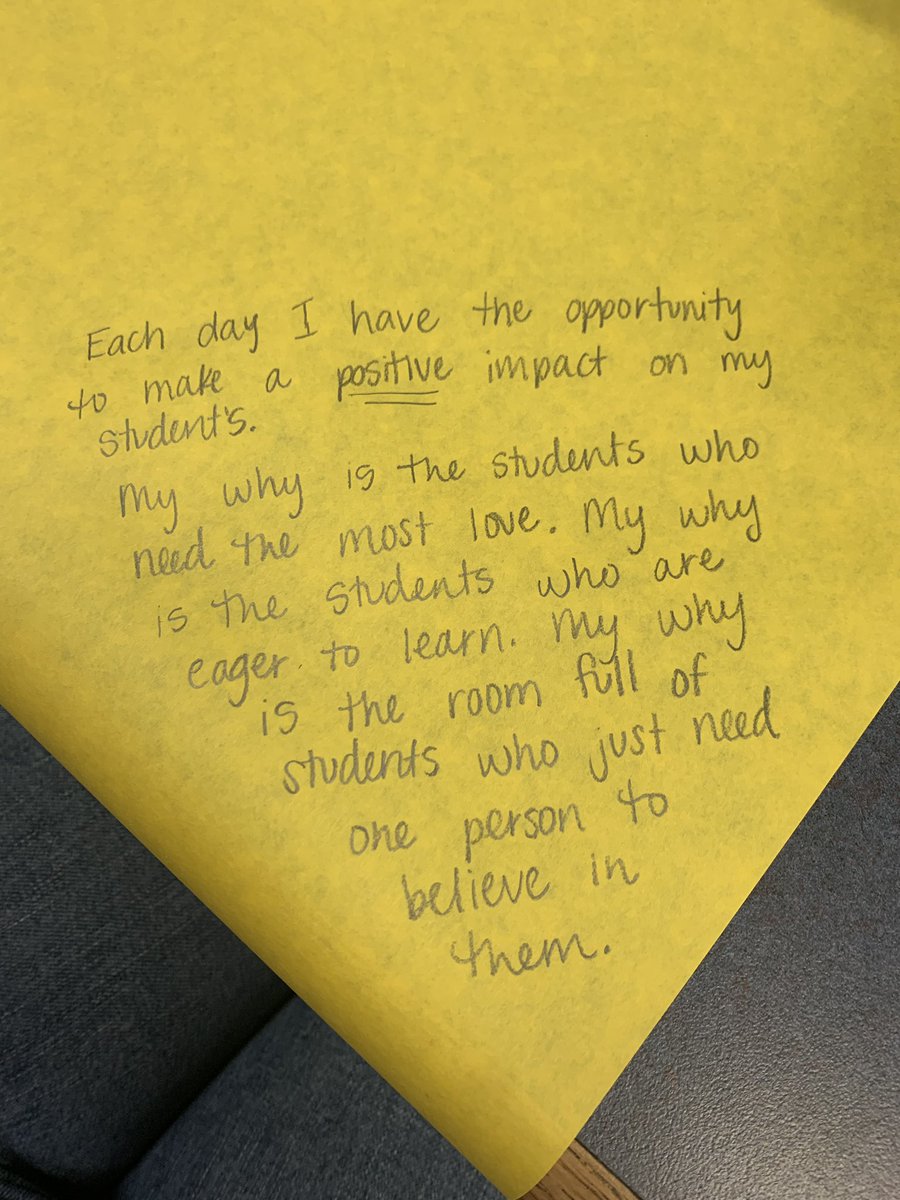 Each day I have the opportunity
to make a positive impact on my
student's.
My why is the students who
need the most love. My why
is the students who are
eager to learn. My why
is the room full of
students who just need
one person to
believe in
them.